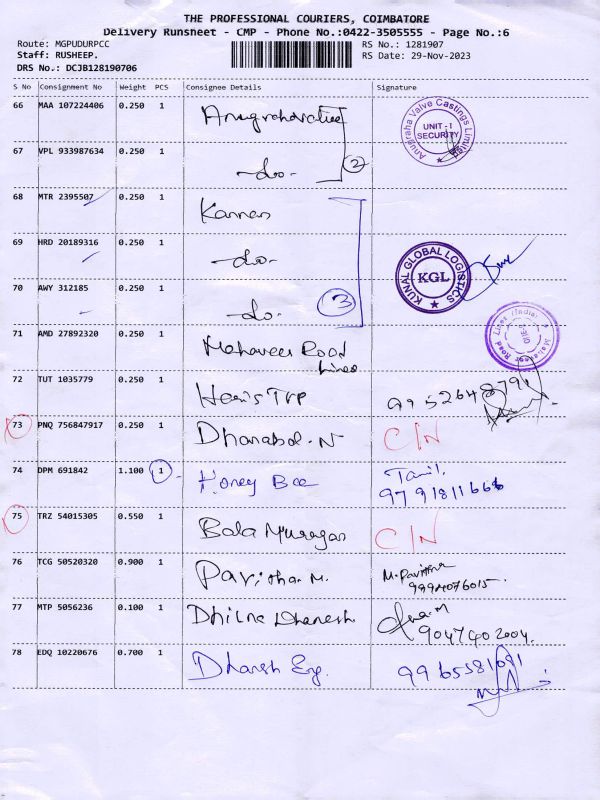 THE PROFESSIONAL COURIERS, COIMBATORE
Delivery Runsheet - CMP - Phone No.:0422-3505555 - Page No.:6
Route: MGPUDURPCC RS No.: 1281907
Staff: RUSHEEP. RS Date: 29-Nov-2023
DRS No.: DCJB128190706
S No Consignment No Weight PCS Consignee Details Signature
66 MAA 107224406 0.250 1
Anugraha Valve Castings Limited
UNIT - I
SECURITY
67 VPL 933987634 0.250 1 -do- 2
68 MTR 2395507 0.250 1 Kannan
69 HRD 20189316 0.250 1 -do-
KUNAL GLOBAL LOGISTICS
KGL
70 AWY 312185 0.250 1 -do- 3
71 AMD 27892320 0.250 1 Mahaveer Road
Lines
Mahaveer Road Lines (India)
72 TUT 1035779 0.250 1
73 PNQ 756847917 0.250 1 Dhanabal. N C/N
74 DPM 691842 1.100 1 Honey Bee Tamil.
9791811666
75 TRZ 54015305 0.550 1 Bala Murugan C/N
76 TCG 50520320 0.900 1 Pavithra M. M. Pavithra
9994076015.
77 MTP 5056236 0.100 1 Dhanesh
9047402004.
78 EDQ 10220676 0.700 1 Dharsh Eng. 9965581081